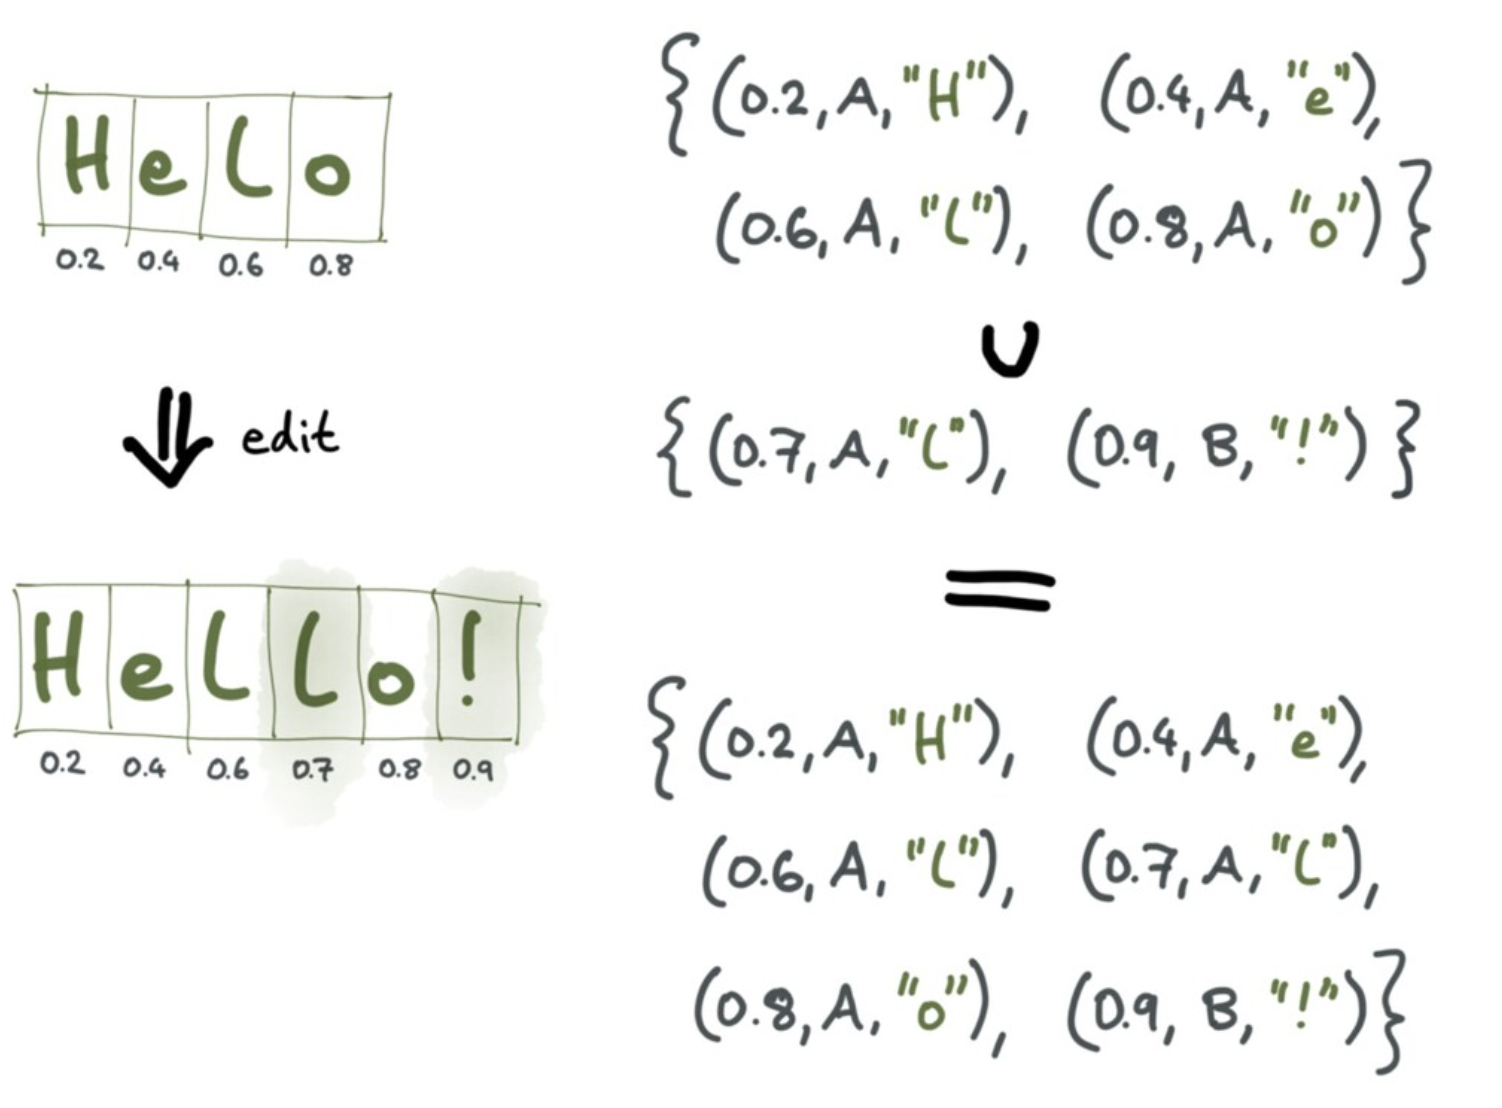 Helo
0.2 0.4 0.6 0.8
edit
Hello!
0.2 0.4 0.6 0.7 0.8 0.9
{(0.2, A, "H"), (0.4, A, "e"),
(0.6, A, "l"), (0.8, A, "o")}
∪
{(0.7, A, "l"), (0.9, B, "!")}
=
{(0.2, A, "H"), (0.4, A, "e"),
(0.6, A, "l"), (0.7, A, "l"),
(0.8, A, "o"), (0.9, B, "!")}